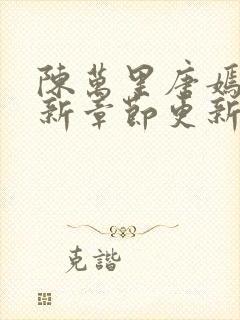 陳萬里唐嫣
新章節更新
克諧